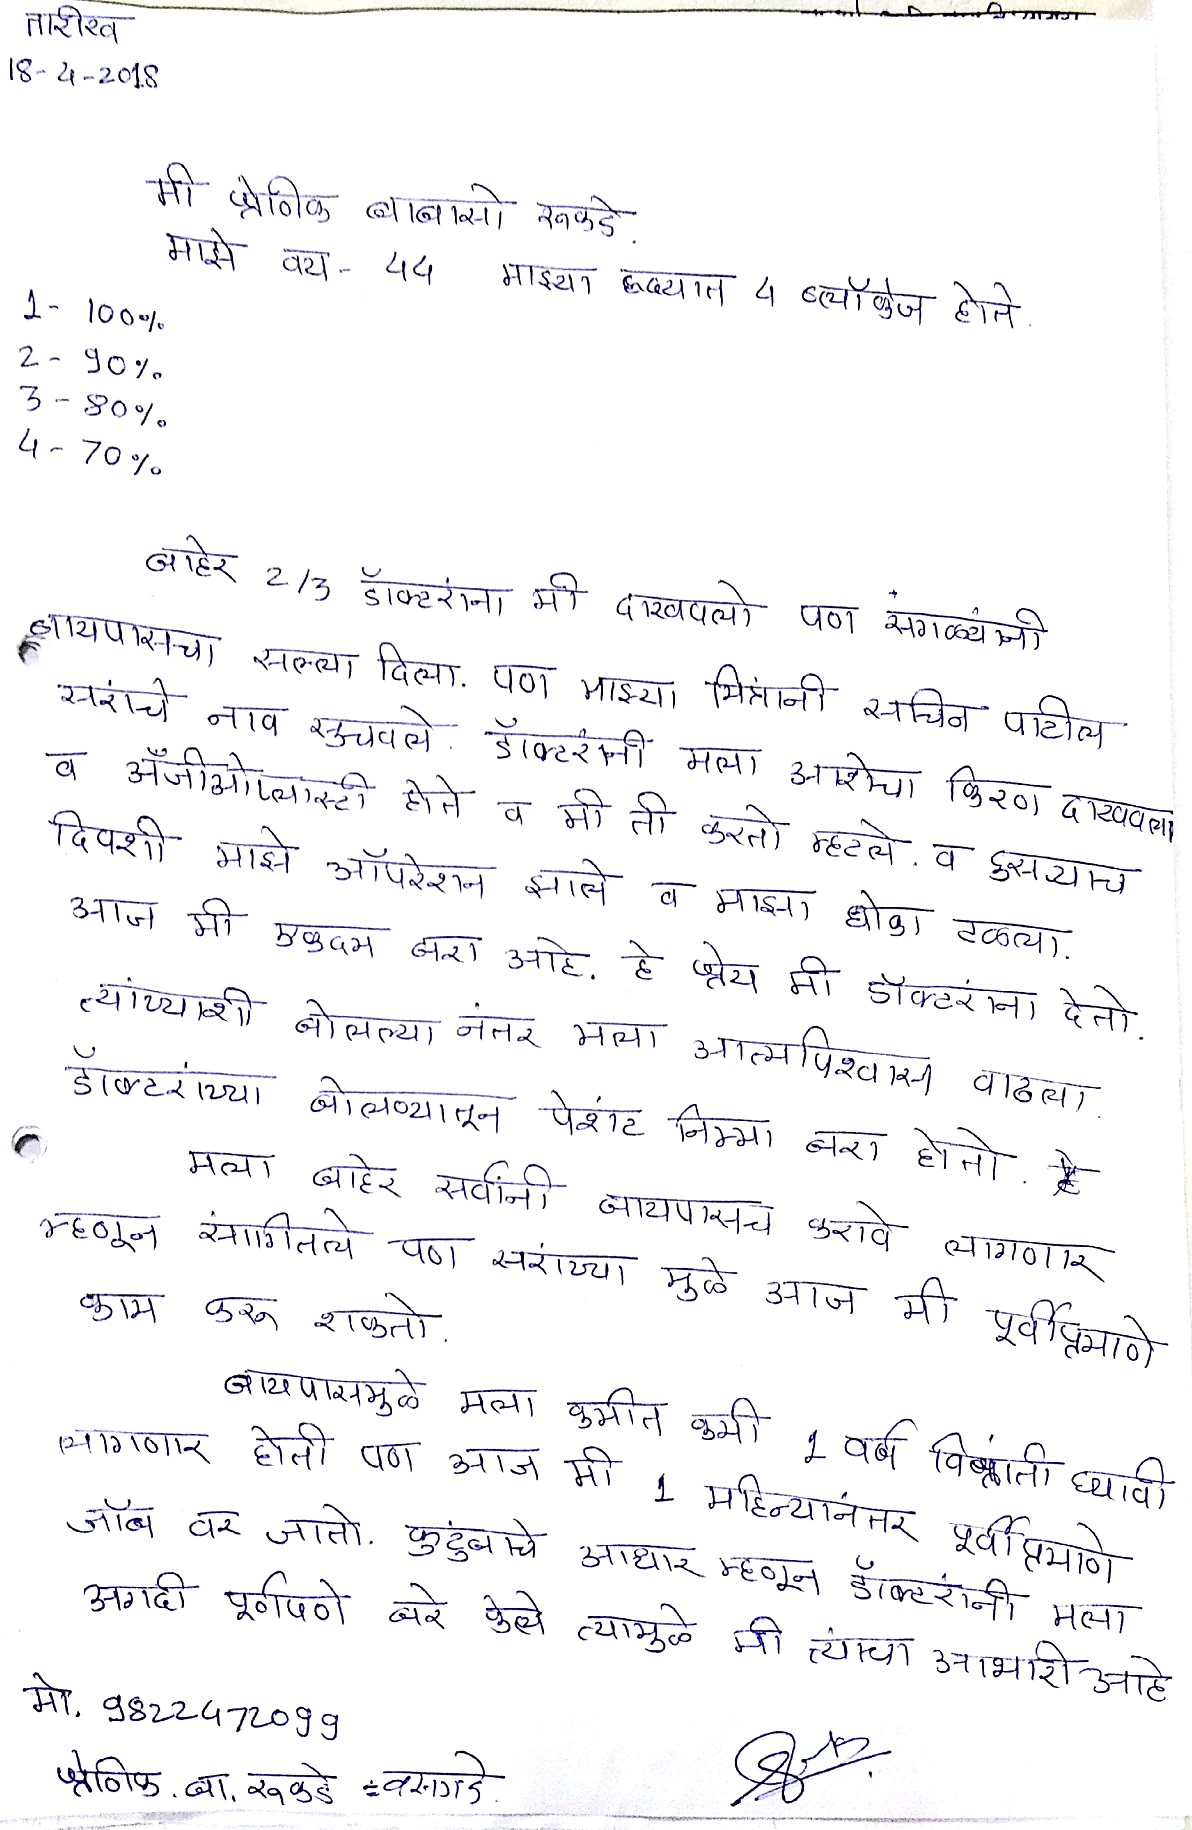 तारीख
18-4-2018
मी श्रेणिक बाबासो रूकडे.
माझे वय - 44 माझ्या हृदयात 4 ब्लॉकेज होते.
1 - 100%
2 - 90%
3 - 80%
4 - 70%
बाहेर 2/3 डॉक्टरांना मी दाखवलो पण सगळ्यांनी
बायपासचा सल्ला दिला. पण माझ्या मित्रांनी सचिन पाटील
सरांचे नाव सुचवले. डॉक्टरांनी मला आशेचा किरण दाखवला
व अँजीओप्लास्टी होते व मी ती करतो म्हटले. व दुसऱ्याच
दिवशी माझे ऑपरेशन झाले व माझा धोका टळला.
आज मी एकदम बरा आहे. हे श्रेय मी डॉक्टरांना देतो.
त्यांच्याशी बोलल्या नंतर मला आत्मविश्वास वाढला.
डॉक्टरांच्या बोलण्यातून पेशंट निम्मा बरा होतो.
मला बाहेर सर्वांनी बायपासच करावे लागणार
म्हणून सांगितले पण सरांच्या मुळे आज मी पूर्वीप्रमाणे
काम करू शकतो.
बायपासमुळे मला कमीत कमी 1 वर्ष विश्रांती घ्यावी
लागणार होती पण आज मी 1 महिन्यानंतर पूर्वीप्रमाणे
जॉब वर जातो. कुटुंबाचे आधार म्हणून डॉक्टरांनी मला
अगदी पूर्णपणे बरे केले त्यामुळे मी त्यांचा आभारी आहे
मो. 9822472099
श्रेणिक. बा. रूकडे वसगडे.